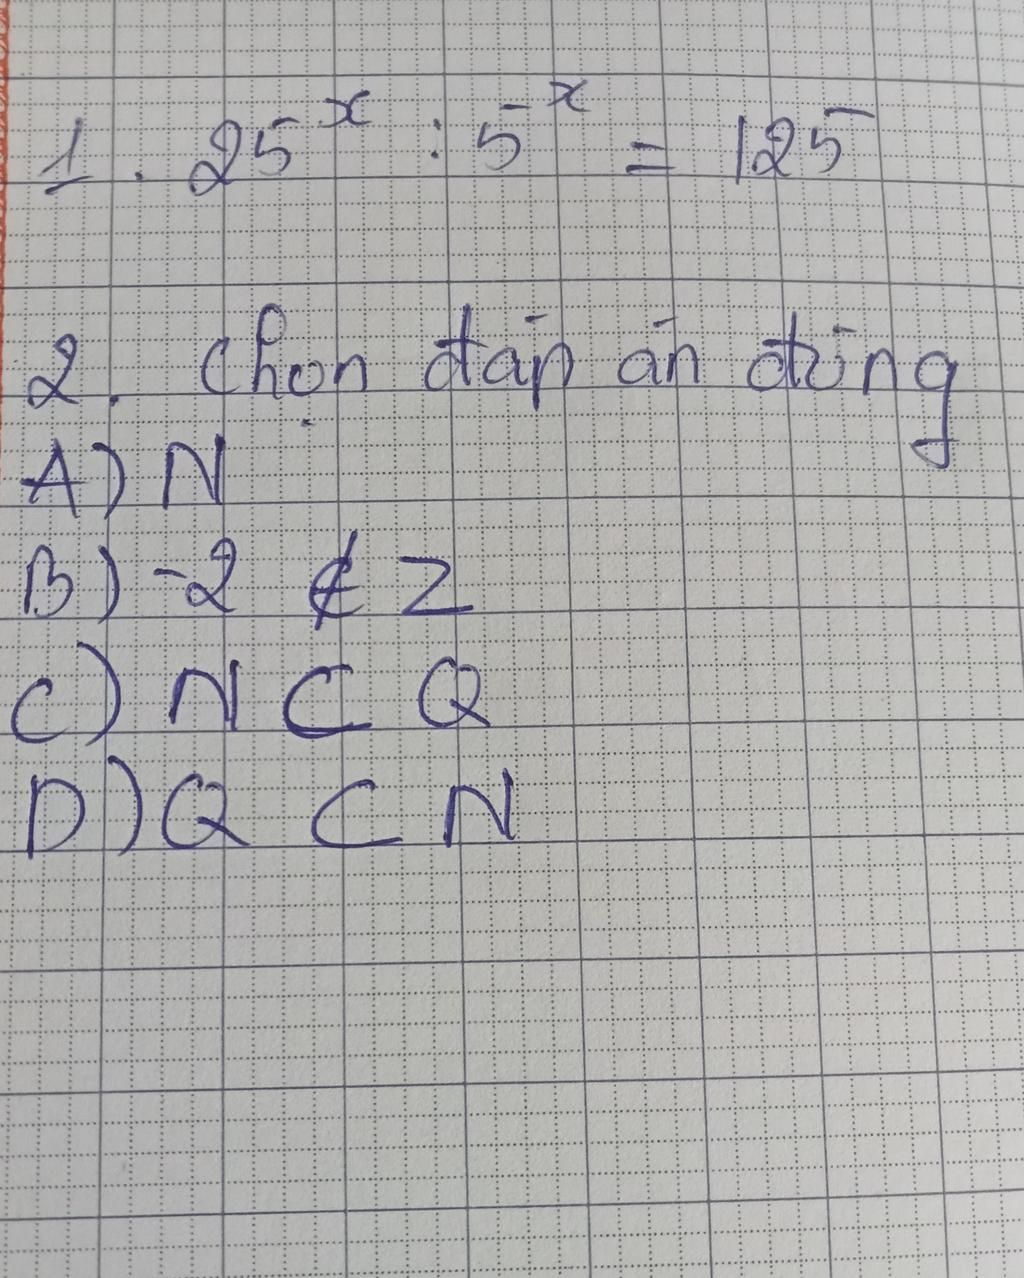 1. 25^x : 5^x = 125
2. Chọn đáp án đúng
A) N
B) -2 ∉ Z
C) N ⊂ Q
D) Q ⊂ N